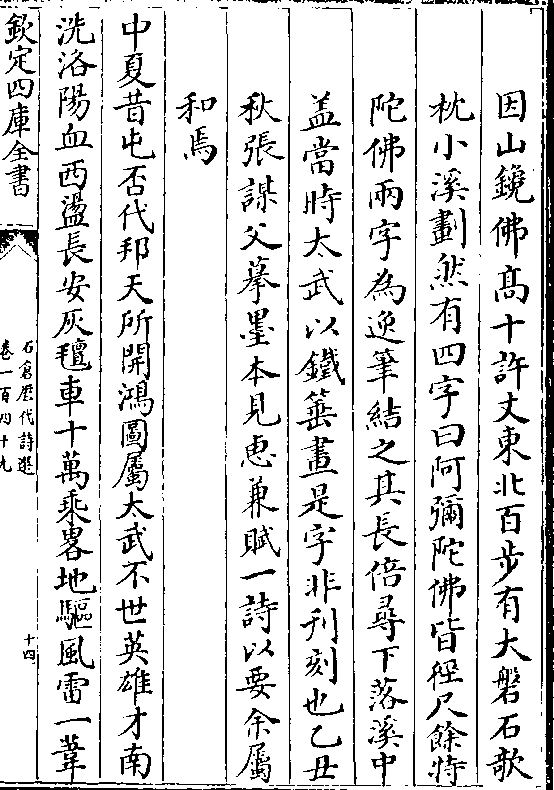 因山鐫佛髙十許丈東北百步有大磐石欹
枕小溪劃然有四字曰阿彌陀佛皆徑尺餘特
陀佛兩字為逸筆結之其長倍尋下落溪中
盖當時太武以鐵箠畫是字非刋刻也乙丑
秋張謀父摹墨本見恵兼賦一詩以要余属
和焉
中夏昔屯否代邦天所開鴻圖屬太武不世英雄才南
洗洛陽血西盪長安灰氊車十萬乘畧地驅風雷一葦
欽定四庫全書
石倉歷代詩選
卷一百四十九
十四